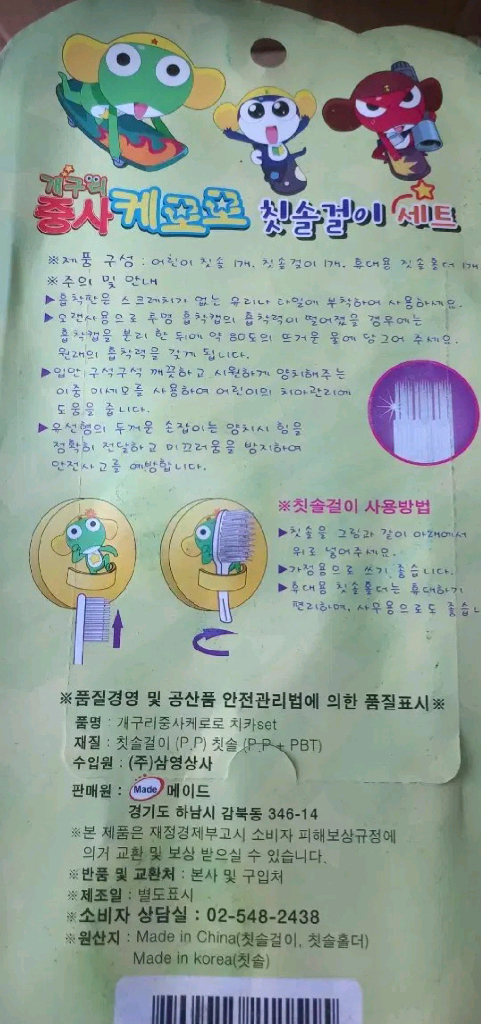 개구리
중사 케로로 칫솔걸이 세트
※제품 구성 : 어린이 칫솔 1개, 칫솔걸이 1개, 휴대용 칫솔홀더 1개
※주의 및 안내
▶흡착판은 스크레치가 없는 유리나 타일에 부착하여 사용하세요.
▶오랜사용으로 투명 흡착캡의 흡착력이 떨어졌을 경우에는
흡착캡을 분리 한 뒤에 약 80도의 뜨거운 물에 담그어 주세요.
원래의 흡착력을 갖게 됩니다.
▶입안 구석구석 깨끗하고 시원하게 양치해주는
이중 미세모를 사용하여 어린이의 치아관리에
도움을 줍니다.
▶유선형의 두꺼운 손잡이는 양치시 힘을
정확히 전달하고 미끄러움을 방지하여
안전사고를 예방합니다.
※칫솔걸이 사용방법
▶칫솔을 그림과 같이 아래에서
위로 넣어주세요.
▶가정용으로 쓰기 좋습니다.
▶휴대용 칫솔홀더는 휴대하기
편리하며, 사무용으로도 좋습니
※품질경영 및 공산품 안전관리법에 의한 품질표시※
품명 : 개구리중사케로로 치카set
재질 : 칫솔걸이 (P.P) 칫솔 (P.P + PBT)
수입원 : (주)삼영상사
판매원 : Made 메이드
경기도 하남시 감북동 346-14
※본 제품은 재정경제부고시 소비자 피해보상규정에
의거 교환 및 보상 받으실 수 있습니다.
※반품 및 교환처 : 본사 및 구입처
※제조일 : 별도표시
※소비자 상담실 : 02-548-2438
※원산지 : Made in China(칫솔걸이, 칫솔홀더)
Made in korea(칫솔)